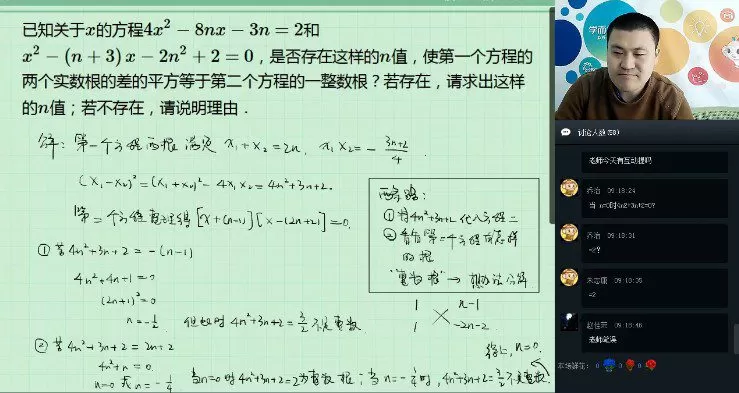 已知关于x的方程4x² − 8nx − 3n = 2和
x² − (n + 3)x − 2n² + 2 = 0，是否存在这样的n值，使第一个方程的
两个实数根的差的平方等于第二个方程的一整数根？若存在，请求出这样
的n值；若不存在，请说明理由．
解：第一个方程两根满足 x₁+x₂=2n, x₁x₂=−(3n+2)/4.
(x₁−x₂)²=(x₁+x₂)²−4x₁x₂=4n²+3n+2.
第二个方程整理得[x+(n−1)][x−(2n+2)]=0.
① 若4n²+3n+2=−(n−1)
4n²+4n+1=0
(2n+1)²=0
n=−1/2 但此时4n²+3n+2=3/2不是整数
② 若4n²+3n+2=2n+2
4n²+n=0
n=0或n=−1/4 当n=0时4n²+3n+2=2为整数根；当n=−1/4时，4n²+3n+2=3/2不是整数
综上，n=0.
两条路：
① 将4n²+3n+2代入方程二
② 看看第二个方程有怎样
的根
"整数根"→想办法分解
1 n−1
1 −2n−2
学而
讨论人数(58)
老师今天有互动提吗
乔治 09:18:24
当 n=0时4n2+3n+2=0?
乔治 09:18:31
=2?
朱志康 09:18:35
=2
赵佳荣 09:18:46
老师笔误
本场鲜花： 0 0 0